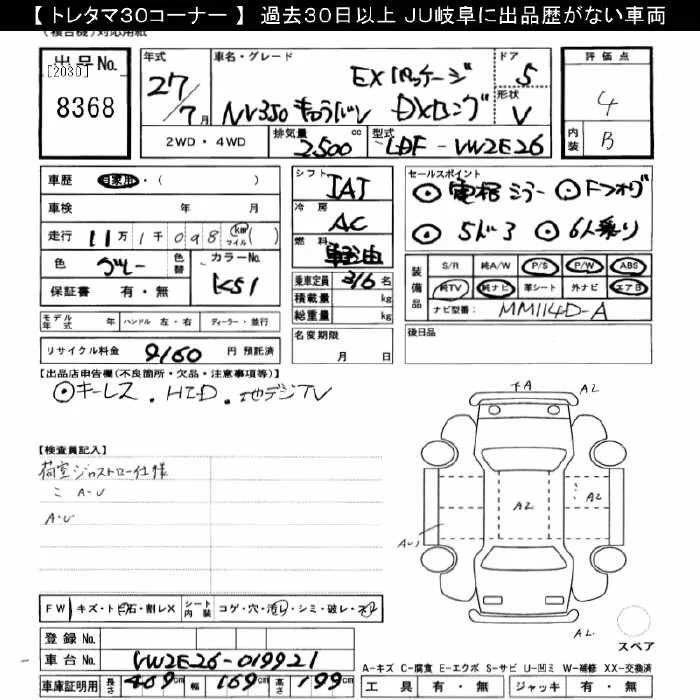 【 トレタマ30コーナー 】 過去30日以上 JU岐阜に出品歴がない車両
(複合機)対応用紙
出品No.
[2030]
8368
年式 車名・グレード ドア 形状
27/7月 EXパッケージ 5
NV350 キャラバン DXロング V
2WD・4WD 排気量 2500 cc 型式 LDF-VW2E26
評価点
4
内装 B
車歴 自家用・( )
車検 年 月
走行 11万1千098 km マイル ( )
色 グレー 色替 カラーNo. K51
保証書 有・無
シフト IAT
冷房 AC
燃料 軽油
乗車定員 3/6名
積載量 kg
総重量 kg
セールスポイント
⊙電格ミラー ⊙Fフォグ
⊙5ドア ⊙6人乗り
装備品 S/R 純A/W P/S P/W ABS
純TV 純ナビ 革シート 外ナビ エアB
ナビ型番: MM114D-A
モデル年式 年 ハンドル 左・右 ディーラー・並行
リサイクル料金 9160 円 預託済
名変期限
月 日
後日品
【出品店申告欄(不良箇所・欠品・注意事項等)】
⊙キーレス . HID . 地デジTV
【検査員記入】
荷室ジャストロー仕様
〃 A-U
A-U
AL
AL
AL
AU1
AL
スペア
FW キズ・ト石・割レX シート内装 コゲ・穴・汚レ・シミ・破レ・スレ
登録 No.
車台 No. VW2E26-019921
車庫証明用 長さ 469cm 幅 169cm 高さ 199cm
A-キズ C-腐食 E-エクボ S-サビ U-凹ミ W-補修 XX-交換済
工具 有・無 ジャッキ 有・無